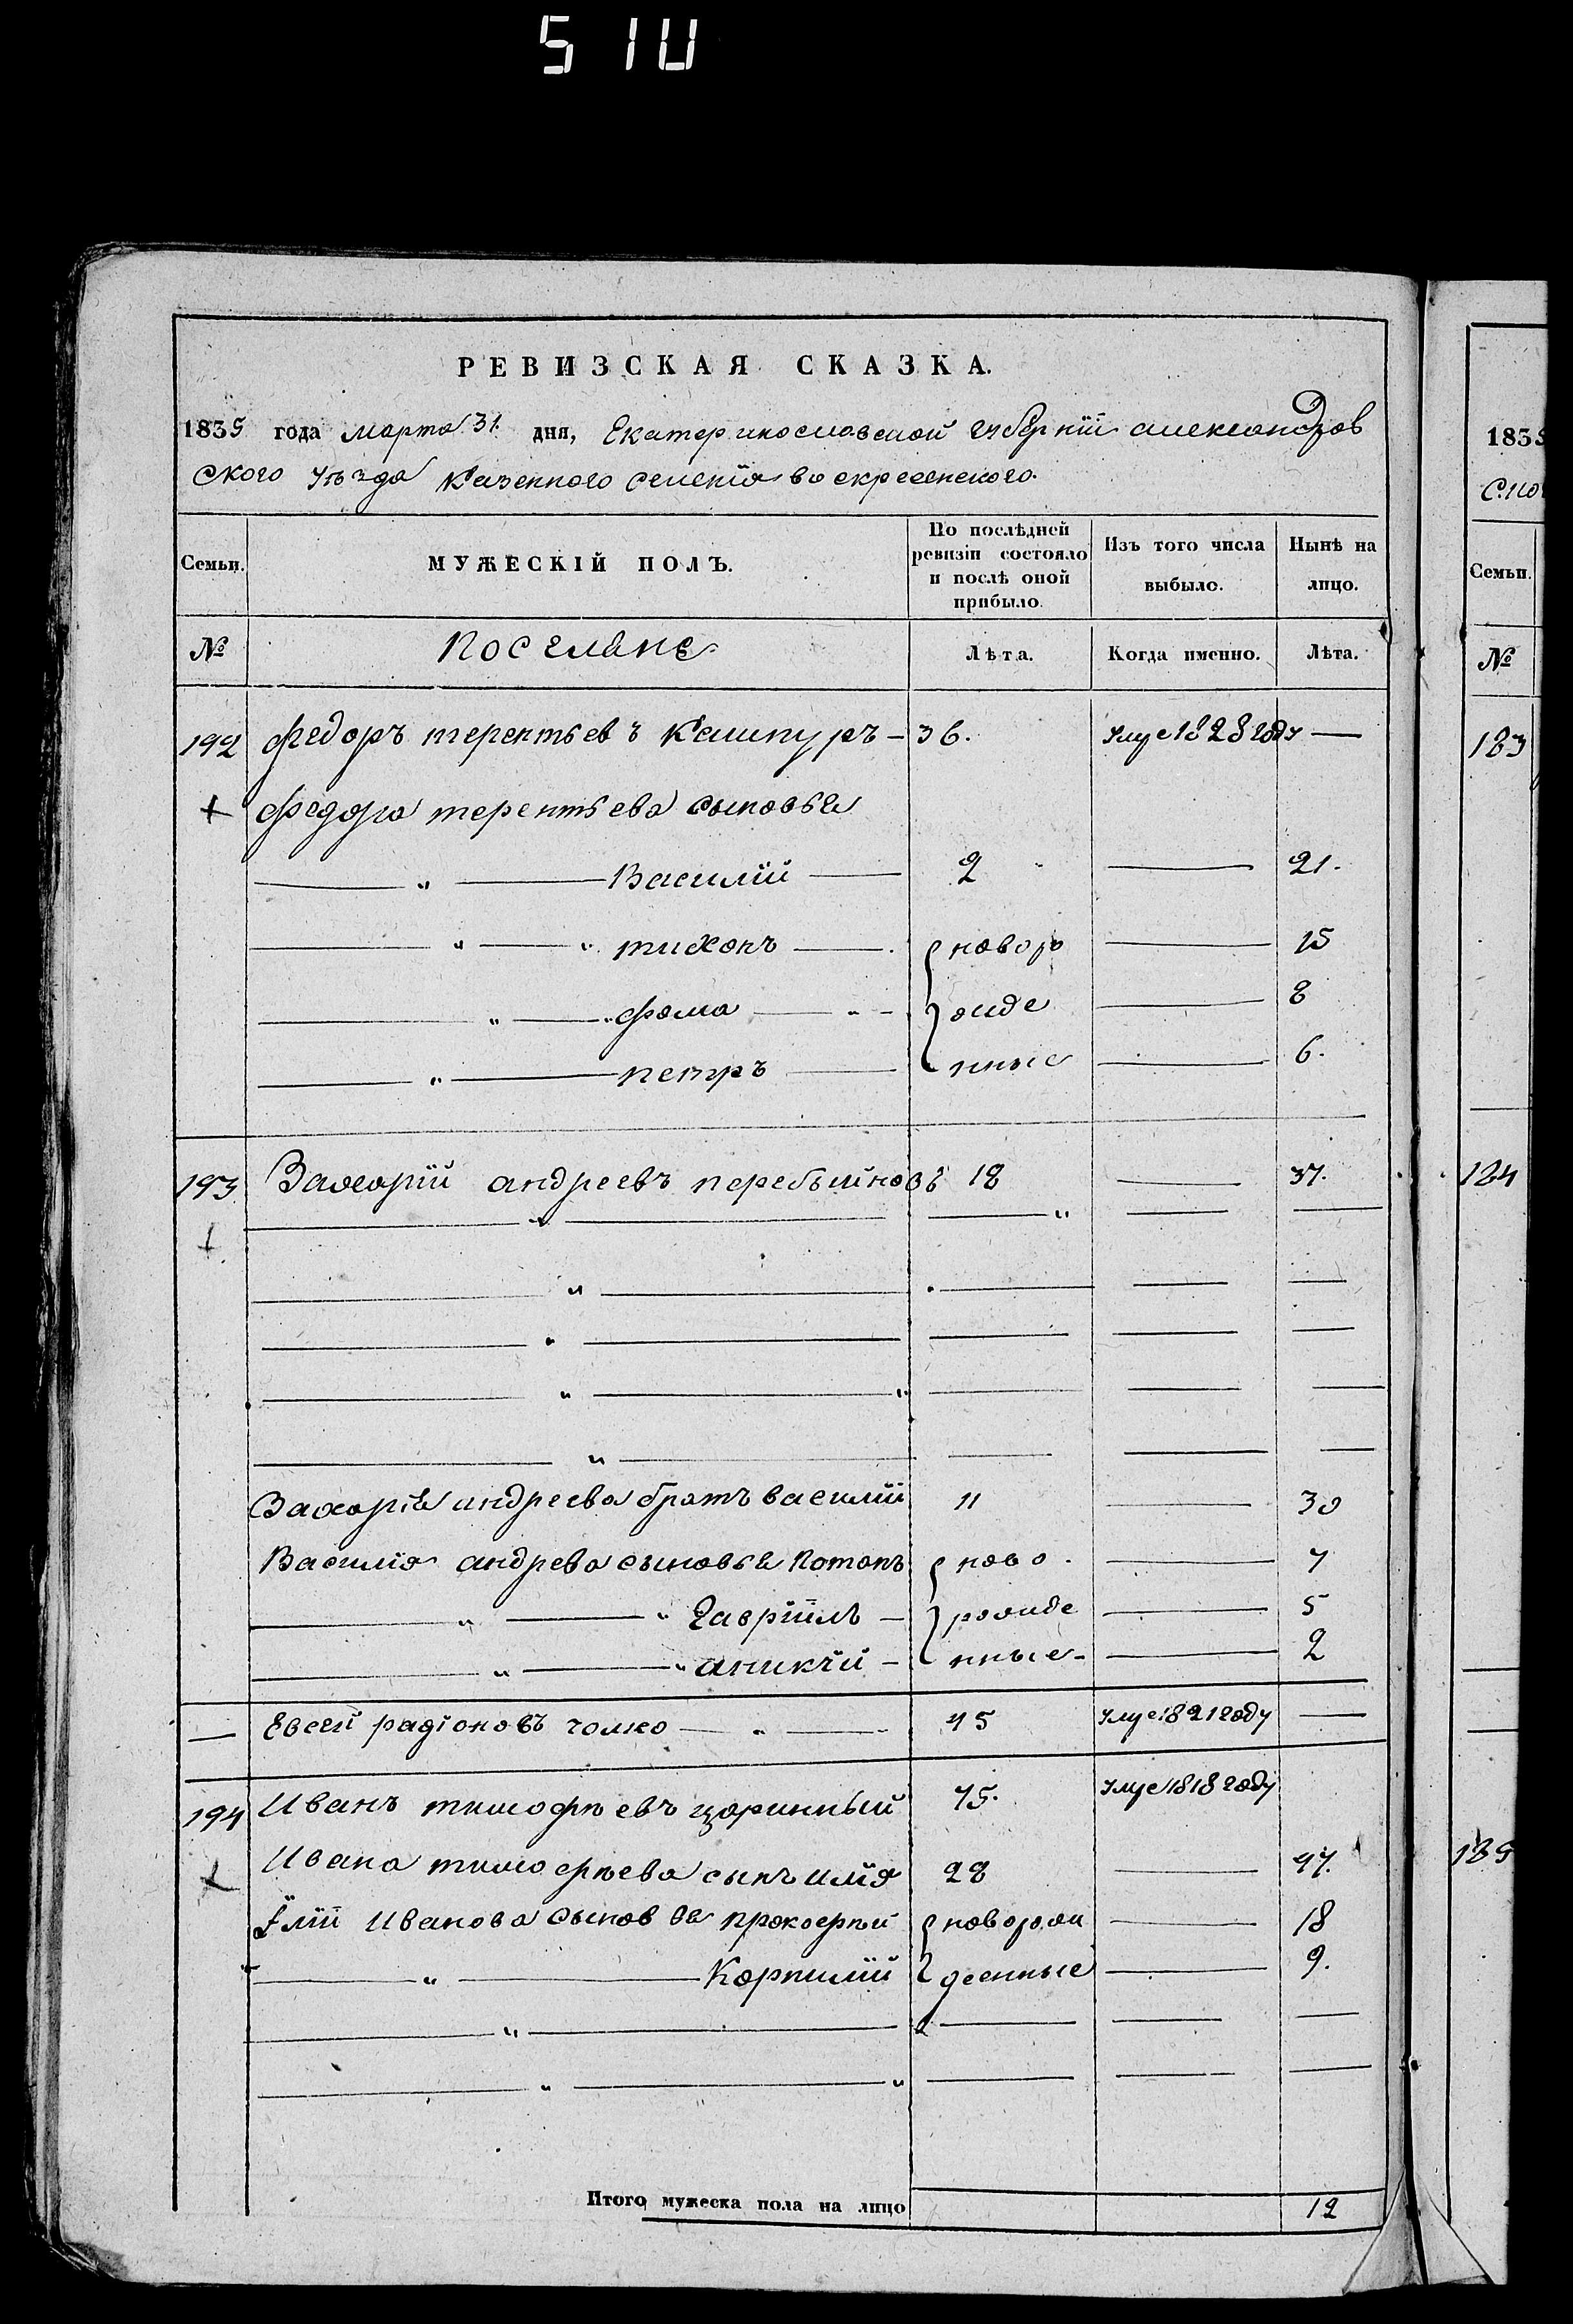 510
РЕВИЗСКАЯ СКАЗКА.
1835 года марта 31. дня, Екатеринославской губерніи александров
ского уѣзда казенного селенія воскресенского.
Семьи. МУЖЕСКІЙ ПОЛЪ. По послѣдней ревизіи состояло и послѣ оной прибыло. Изъ того числа выбыло. Нынѣ на лицо.
№ Поселяне Лѣта. Когда именно. Лѣта.
192 федоръ терентьевъ Кашпуръ — 36. умре 1828 году —
+ федора терентьева сыновья
— „ — Василій — 2 — 21.
— „ — „ тихонъ — новоро — 15
— „ — „ фома — жде — 8
— „ — петръ — нные — 6.
193 Захарій андреевъ 18 — 37.
+ — „ — — „ — —
— „ — — — —
— „ — — — —
— „ — „ — — —
— „ — — — —
Захарія андреева братъ василій 11 — 30
Василія андрева сыновья Потапъ ново — 7
— „ — „ Гавріилъ — рожде — 5
— „ — „ аникѣй — нные — — 2
— Евсей радіоновъ — „ — 45 умре 1821 году —
194 Иванъ тимофѣевъ царинный 75. умре 1818 году
+ Ивана тимофѣева сынъ илія 28 — 47.
Иліи Иванова сыновья прокофѣй новорож — 18
— „ — Корнилій денные — 9.
— „ — — — —
— „ — „ — — —
Итого мужеска пола на лицо 12
1835
Семьи.
№
183
184
185